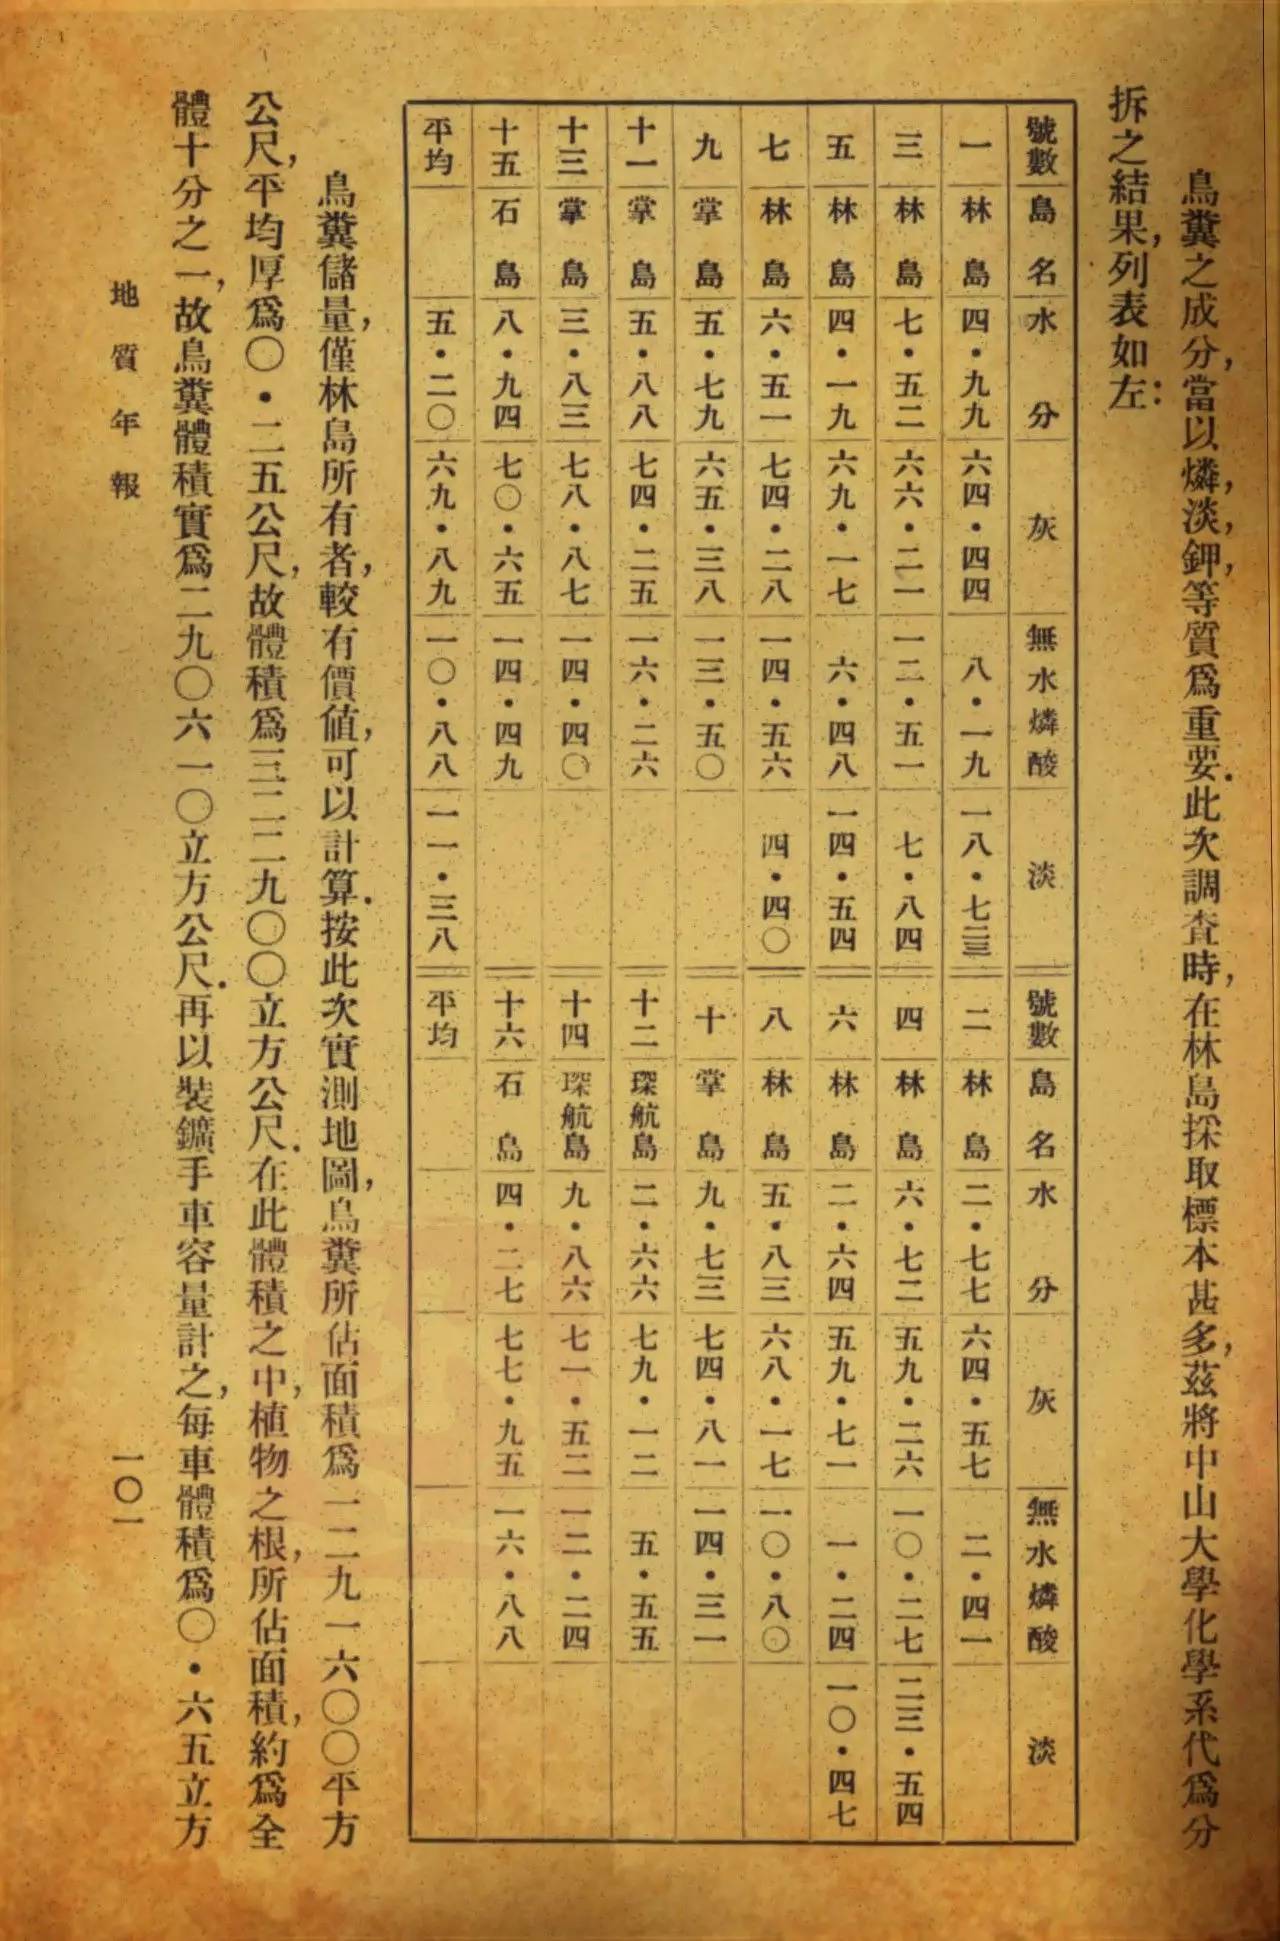 鳥糞之成分，當以燐，淡，鉀，等質爲重要．此次調查時，在林島採取標本甚多，茲將中山大學化學系代爲分
拆之結果，列表如左：
號數 島名 水分 灰 無水燐酸 淡 號數 島名 水分 灰 無水燐酸 淡
一 林島 四・九九 六四・四四 八・一九 二 林島 二・七七 六四・五七 二・四一
三 林島 七・五二 六六・二一 一二・五一 七・八四 四 林島 六・七二 五九・二六 一〇・二七 二三・五四
五 林島 四・一九 六九・一七 六・四八 一四・五四 六 林島 二・六四 五九・七一 一・二四 一〇・四七
七 林島 六・五一 七四・二八 一四・五六 四・四〇 八 林島 五・八三 六八・一七 一〇・八〇
九 掌島 五・七九 六五・三八 一三・五〇 十 掌島 九・七三 七四・八一 一四・三一
十一 掌島 五・八八 七四・二五 一六・二六 十二 琛航島 二・六六 七九・一二 五・五五
十三 掌島 三・八三 七八・八七 一四・四〇 十四 琛航島 九・八六 七一・五二 一二・二四
十五 石島 八・九四 七〇・六五 一四・四九 十六 石島 四・二七 七七・九五 一六・八八
平均 五・二〇 六九・八九 一〇・八八 一一・三八 平均
鳥糞儲量，僅林島所有者，較有價値，可以計算．按此次實測地圖，鳥糞所佔面積爲一二九一六〇〇平方
公尺，平均厚爲〇・二五公尺，故體積爲三二二九〇〇立方公尺．在此體積之中，植物之根，所佔面積，約爲全
體十分之一，故鳥糞體積實爲二九〇六一〇立方公尺．再以裝鑛手車容量計之，每車體積爲〇・六五立方
地質年報
一〇一